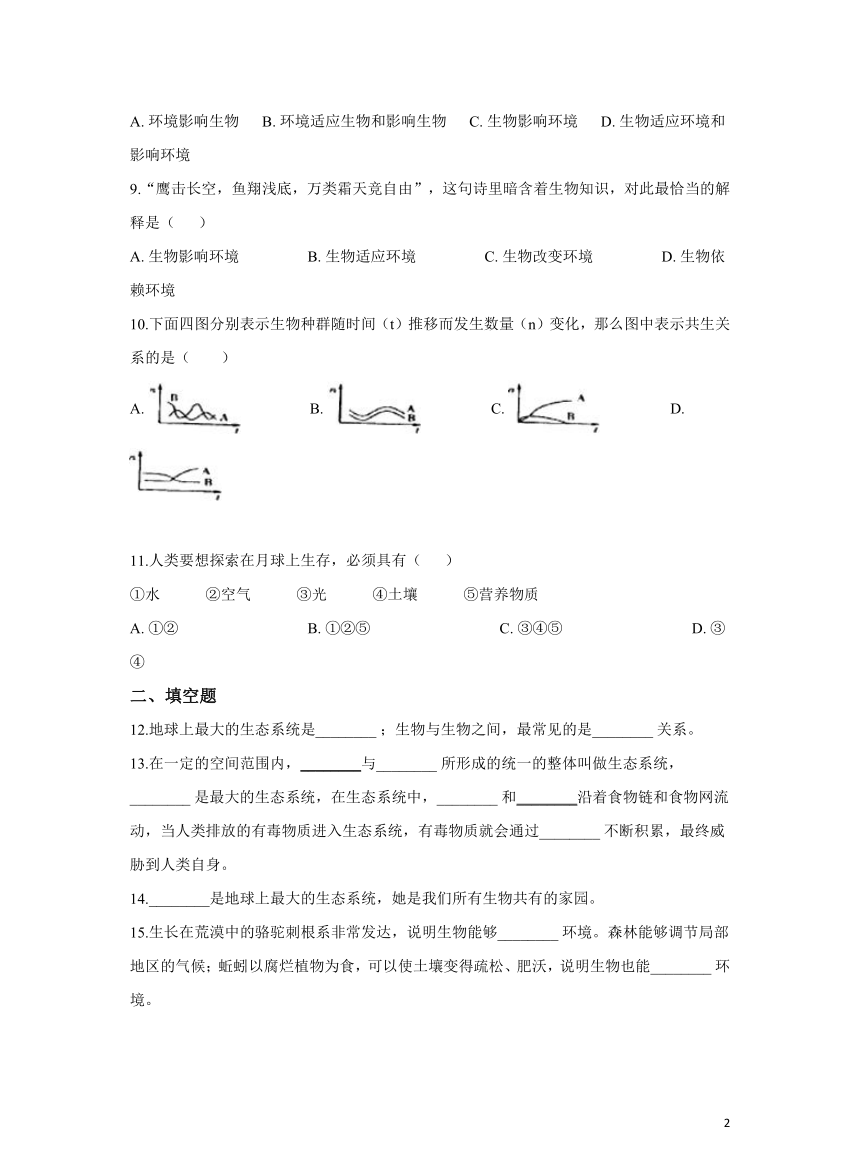 A. 环境影响生物 B. 环境适应生物和影响生物 C. 生物影响环境 D. 生物适应环境和
影响环境
9.“鹰击长空，鱼翔浅底，万类霜天竞自由”，这句诗里暗含着生物知识，对此最恰当的解
释是（ ）
A. 生物影响环境 B. 生物适应环境 C. 生物改变环境 D. 生物依
赖环境
10.下面四图分别表示生物种群随时间（t）推移而发生数量（n）变化，那么图中表示共生关
系的是（ ）
A. n B A t B. n A B t C. n A B t D.
n A B t
11.人类要想探索在月球上生存，必须具有（ ）
①水 ②空气 ③光 ④土壤 ⑤营养物质
A. ①② B. ①②⑤ C. ③④⑤ D. ③
④
二、填空题
12.地球上最大的生态系统是________；生物与生物之间，最常见的是________ 关系。
13.在一定的空间范围内，________与________ 所形成的统一的整体叫做生态系统，
________ 是最大的生态系统，在生态系统中，________ 和________沿着食物链和食物网流
动，当人类排放的有毒物质进入生态系统，有毒物质就会通过________ 不断积累，最终威
胁到人类自身。
14.________是地球上最大的生态系统，她是我们所有生物共有的家园。
15.生长在荒漠中的骆驼刺根系非常发达，说明生物能够________ 环境。森林能够调节局部
地区的气候；蚯蚓以腐烂植物为食，可以使土壤变得疏松、肥沃，说明生物也能________ 环
境。
2